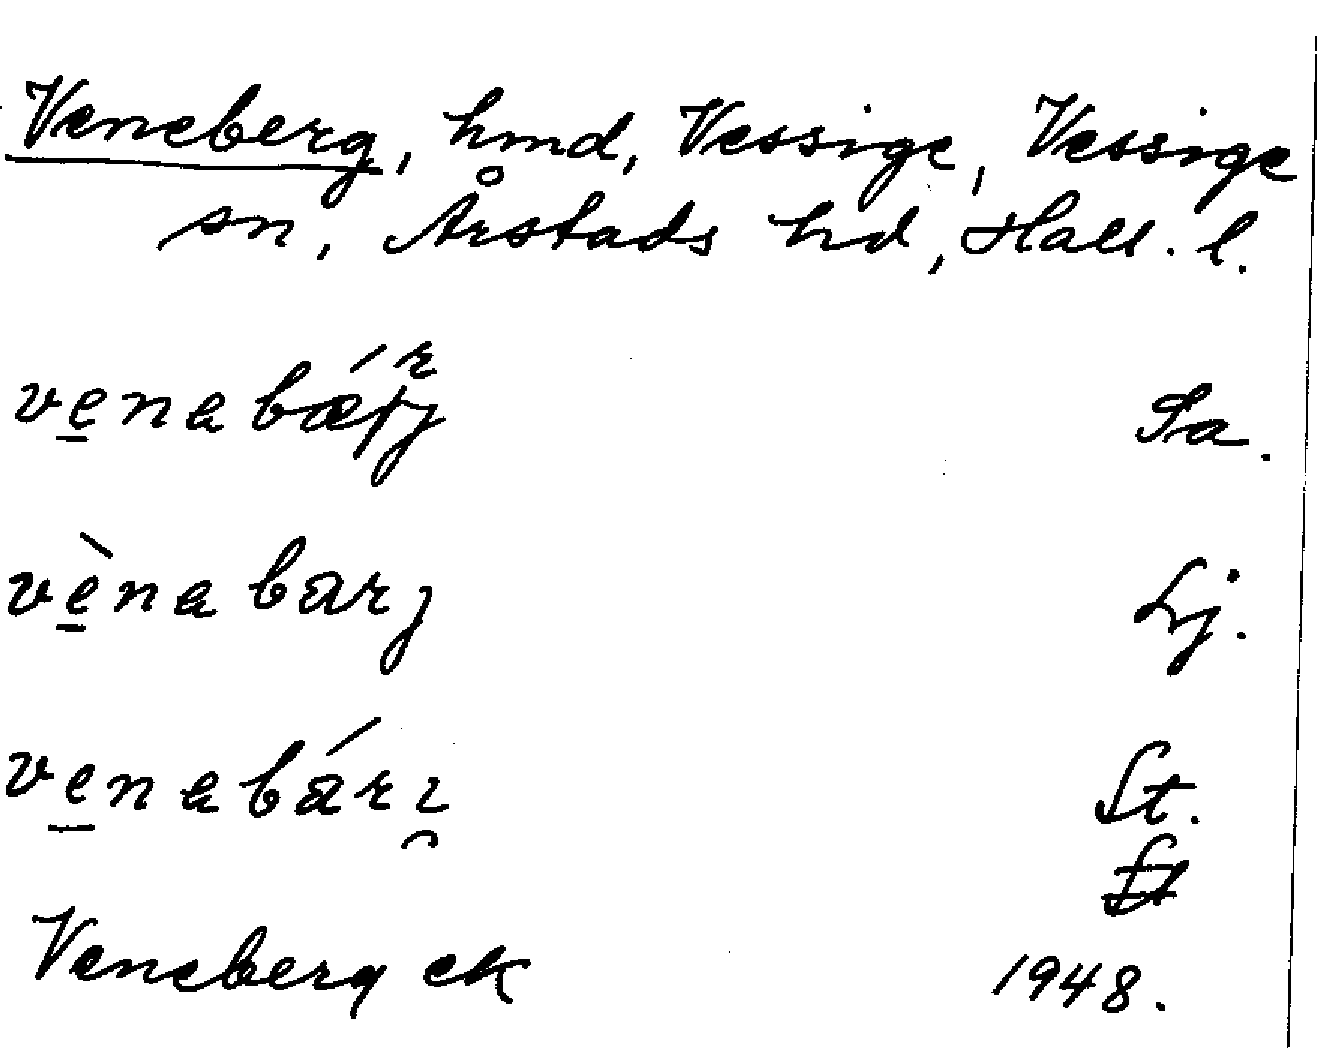 Veneberg, hmd, Vessige, Vessige
sn, Årstads hd, Hall. l.
venabǽrj Sa.
vènabarj Lj.
venabárı̯ St.
Veneberg ek 1948.